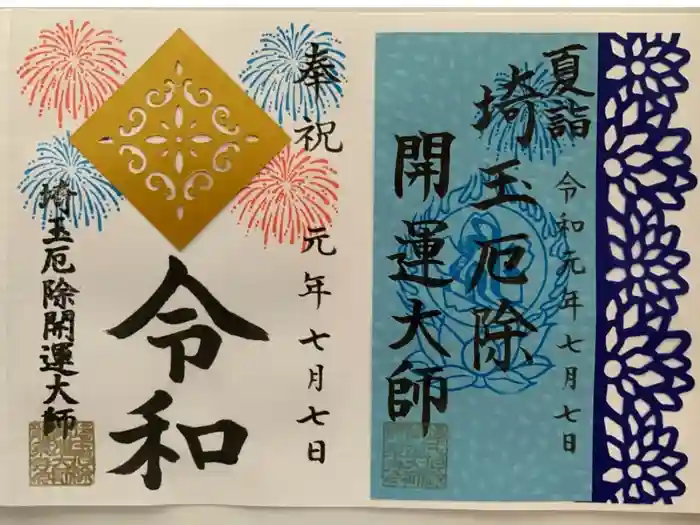 夏詣
埼玉厄除
開運大師
令和元年七月七日
奉祝
元年七月七日
令和
埼玉厄除開運大師